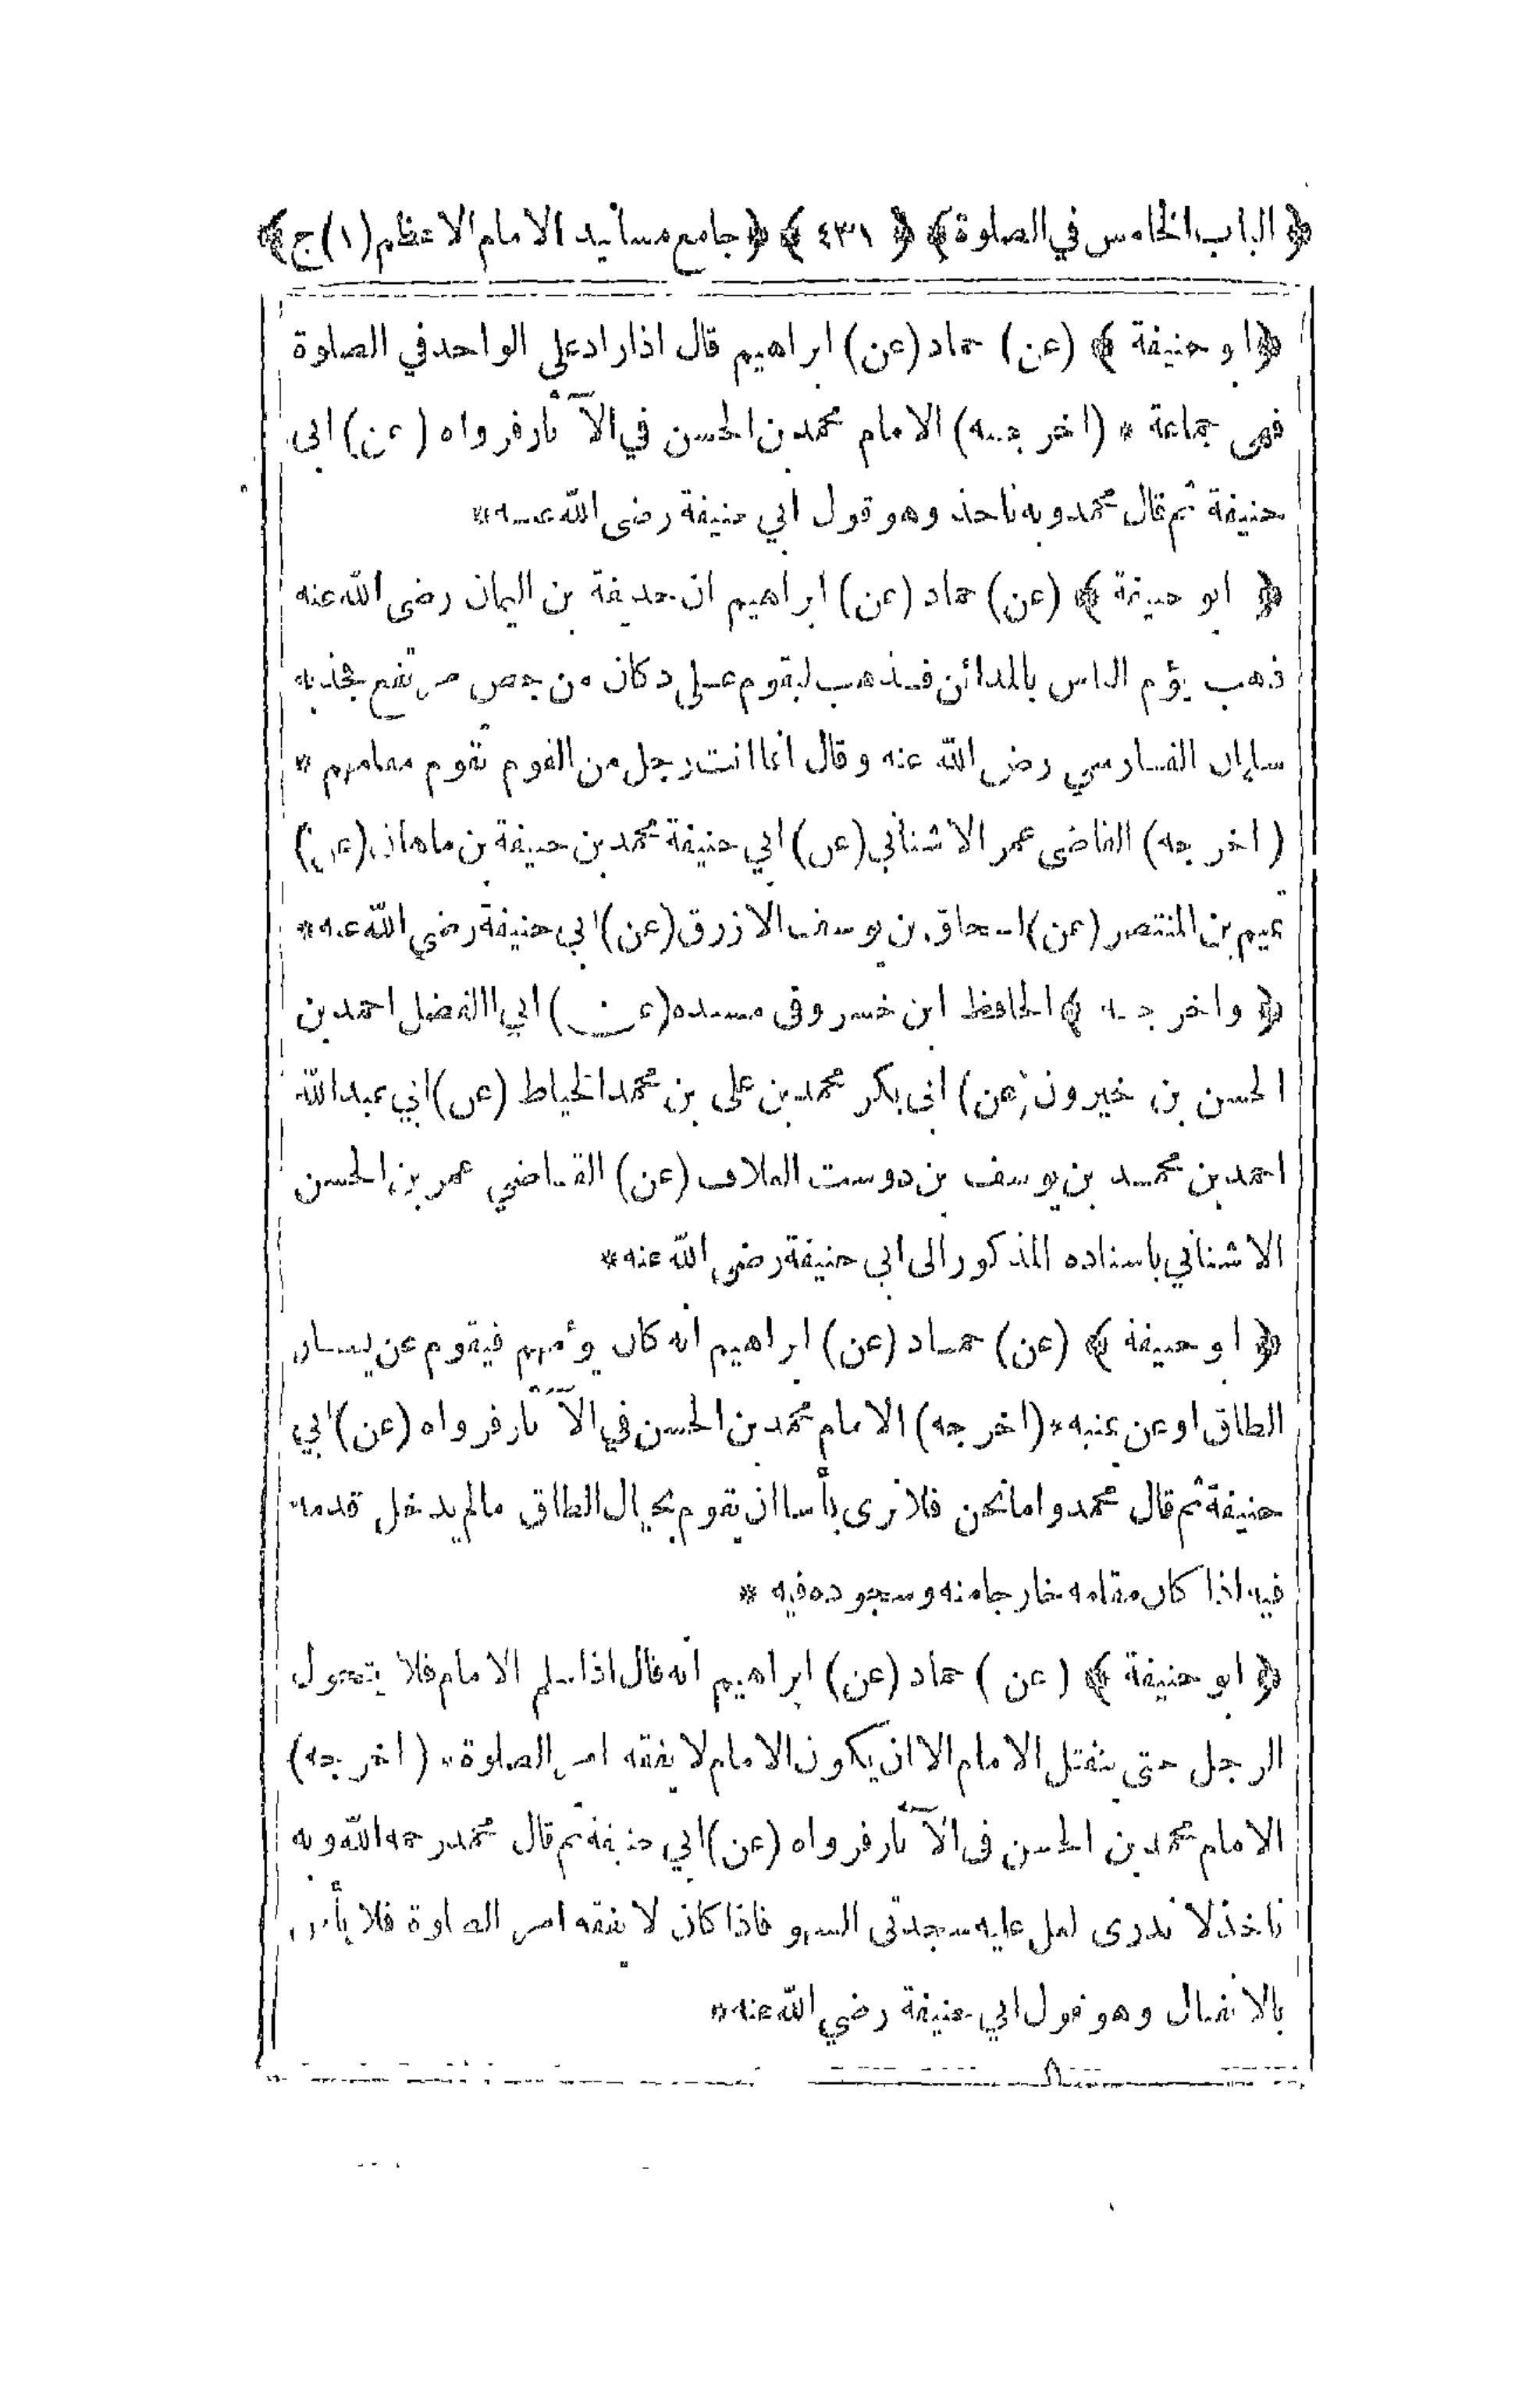 ﴿ الباب الخامس في الصلوة ﴾ ﴿ ٤٣١ ﴾ ﴿ جامع مسانيد الامام الاعظم (١) ج ﴾
﴿ ابو حنيفة ﴾ (عن) حماد (عن) ابراهيم قال اذا زاد على الواحد في الصلوة
فهى جماعة * (اخرجه) الامام محمد بن الحسن في الآثار فرواه (عن) ابى
حنيفة ثم قال محمد وبه ناخذ وهو قول ابي حنيفة رضى الله عنه *
﴿ ابو حنيفة ﴾ (عن) حماد (عن) ابراهيم ان حذيفة بن اليمان رضى الله عنه
ذهب يؤم الناس بالمدائن فذهب ليقوم على دكان من جص مرتفع فجذبه
سلمان الفارسي رضى الله عنه وقال انما انت رجل من القوم تقوم مقامهم *
(اخرجه) القاضى عمر الاشناني (عن) ابي حنيفة محمد بن حنيفة بن ماهان (عن)
تميم بن المنتصر (عن) اسحاق بن يوسف الازرق (عن) ابي حنيفة رضي الله عنه *
﴿ واخرجه ﴾ الحافظ ابن خسرو فى مسنده (عن) ابي الفضل احمد بن
الحسن بن خيرون (عن) ابى بكر محمد بن على بن محمد الخياط (عن) ابي عبد الله
احمد بن محمد بن يوسف بن دوست العلاف (عن) القاضي عمر بن الحسن
الاشناني باسناده المذكور الى ابي حنيفة رضي الله عنه *
﴿ ابو حنيفة ﴾ (عن) حماد (عن) ابراهيم انه كان يؤمهم فيقوم عن يسار
الطاق او عن يمينه * (اخرجه) الامام محمد بن الحسن في الآثار فرواه (عن) ابي
حنيفة ثم قال محمد واما نحن فلا نرى بأسا ان يقوم بحيال الطاق مالم يدخل قدمه
فيه اذا كان مقامه خارجا منه وسجوده فيه *
﴿ ابو حنيفة ﴾ (عن) حماد (عن) ابراهيم انه قال اذا سلم الامام فلا يتحول
الرجل حتى ينفتل الامام الا ان يكون الامام لا يفقه امر الصلوة * (اخرجه)
الامام محمد بن الحسن فى الآثار فرواه (عن) ابي حنيفة ثم قال محمد رحمه الله وبه
ناخذ لا ندرى لعل عليه سجدتى السهو فاذا كان لا يفقه امر الصلوة فلا بأس
بالانفتال وهو قول ابي حنيفة رضي الله عنه *